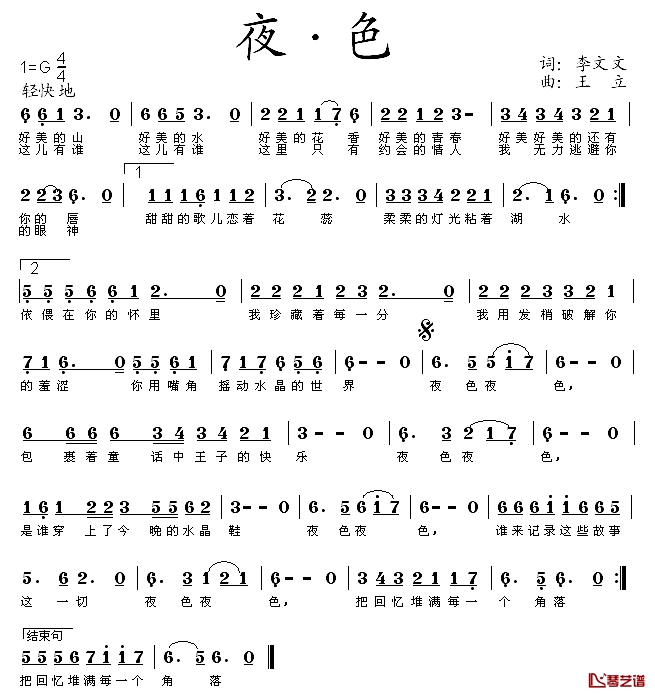 夜·色
1=G 4/4
词：李文文
轻快地
曲：王 立
6 6 1 3. 0 | 6 6 5 3. 0 | 2 2 1 1 7 6 | 2 2 1 2 3- | 3 4 3 4 3 2 1 |
好美的山 好美的水 好美的花 香 好美的青春 好美好美的还有
这儿有谁 这儿有谁 这里 只 有 约会的情人 我 无力逃避你
1
2 2 3 6. 0 | 1 1 1 1 6 1 1 1 | 3. 2 2. 0 | 3 3 3 3 5 2 2 2 | 2. 1 6. 0 :||
你的 唇 甜甜的歌儿恋着 花 蕊 柔柔的灯光粘着 湖 水
的眼 神
2
5 5 5 6 6 1 2. 0 | 2 2 2 1 2 3 2. 0 | 2 2 2 2 3 3 2 1 |
依偎在你的怀里 我珍藏着每一分 我用发梢破解你
7 1 6. 0 5 5 6 1 | 2 1 7 1 2 1 7 5 | 6 - - 0 | 6. 5 5 i 7 | 6 - - 0 |
的羞涩 你用嘴角 摇动水晶的世 界 夜色夜 色，
6 6 6 6 3 4 3 4 2 1 | 3 - - 0 | 6. 3 2 1 7 | 6 - - 0 |
包 裹着童 话中王子的快 乐 夜色夜 色，
1 6 1 2 2 3 3 5 2 1 7 | 6 - - 0 | 6. 5 6 i 7 | 6 - - 0 | 6 6 6 i 6 6 6 5 |
是谁穿 上了今 晚的水晶 鞋 夜色夜 色， 谁来记录这些故事
5. 6 2. 0 | 6. 3 1 2 1 | 3 - - 0 | 3 4 3 2 2 1 1 7 | 6. 5 6. 0 :||
这 一切 夜色夜 色， 把回忆堆满每一 个 角落
结束句
5 5 5 6 7 i i 7 | 6. 5 6. 0 ||
把回忆堆满每一个 角 落
琴艺谱